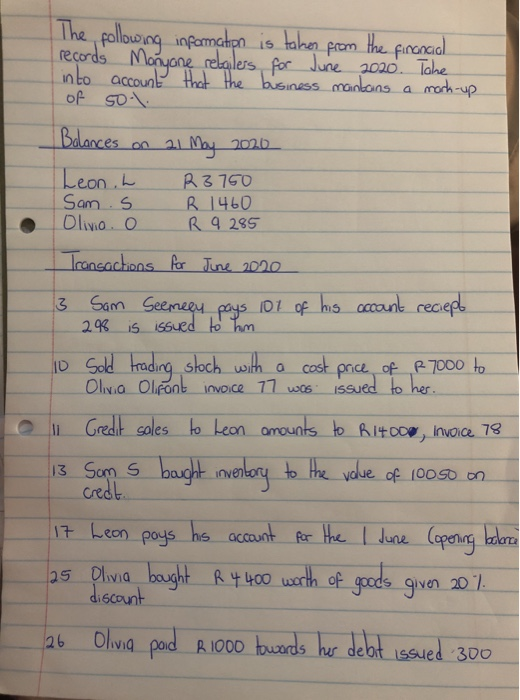 The following information is taken from the financial
records Manyane retailers for June 2020. Take
into account that the business maintains a mark-up
of 50%.
Balances on 21 May 2020
Leon. L R3 750
Sam. S R 1460
Olivia. O R 9 285
Transactions for June 2020
3 Sam Seemeey pays 10% of his account reciept
298 is issued to him
10 Sold trading stock with a cost price of R7000 to
Olivia Olifant invoice 77 was issued to her.
11 Credit sales to Leon amounts to R1400, Invoice 78
13 Sam S bought inventory to the value of 10050 on
credit.
17 Leon pays his account for the 1 June (opening balance)
25 Olivia bought R 4 400 worth of goods given 20%
discount
26 Olivia paid R1000 towards her debit issued 300